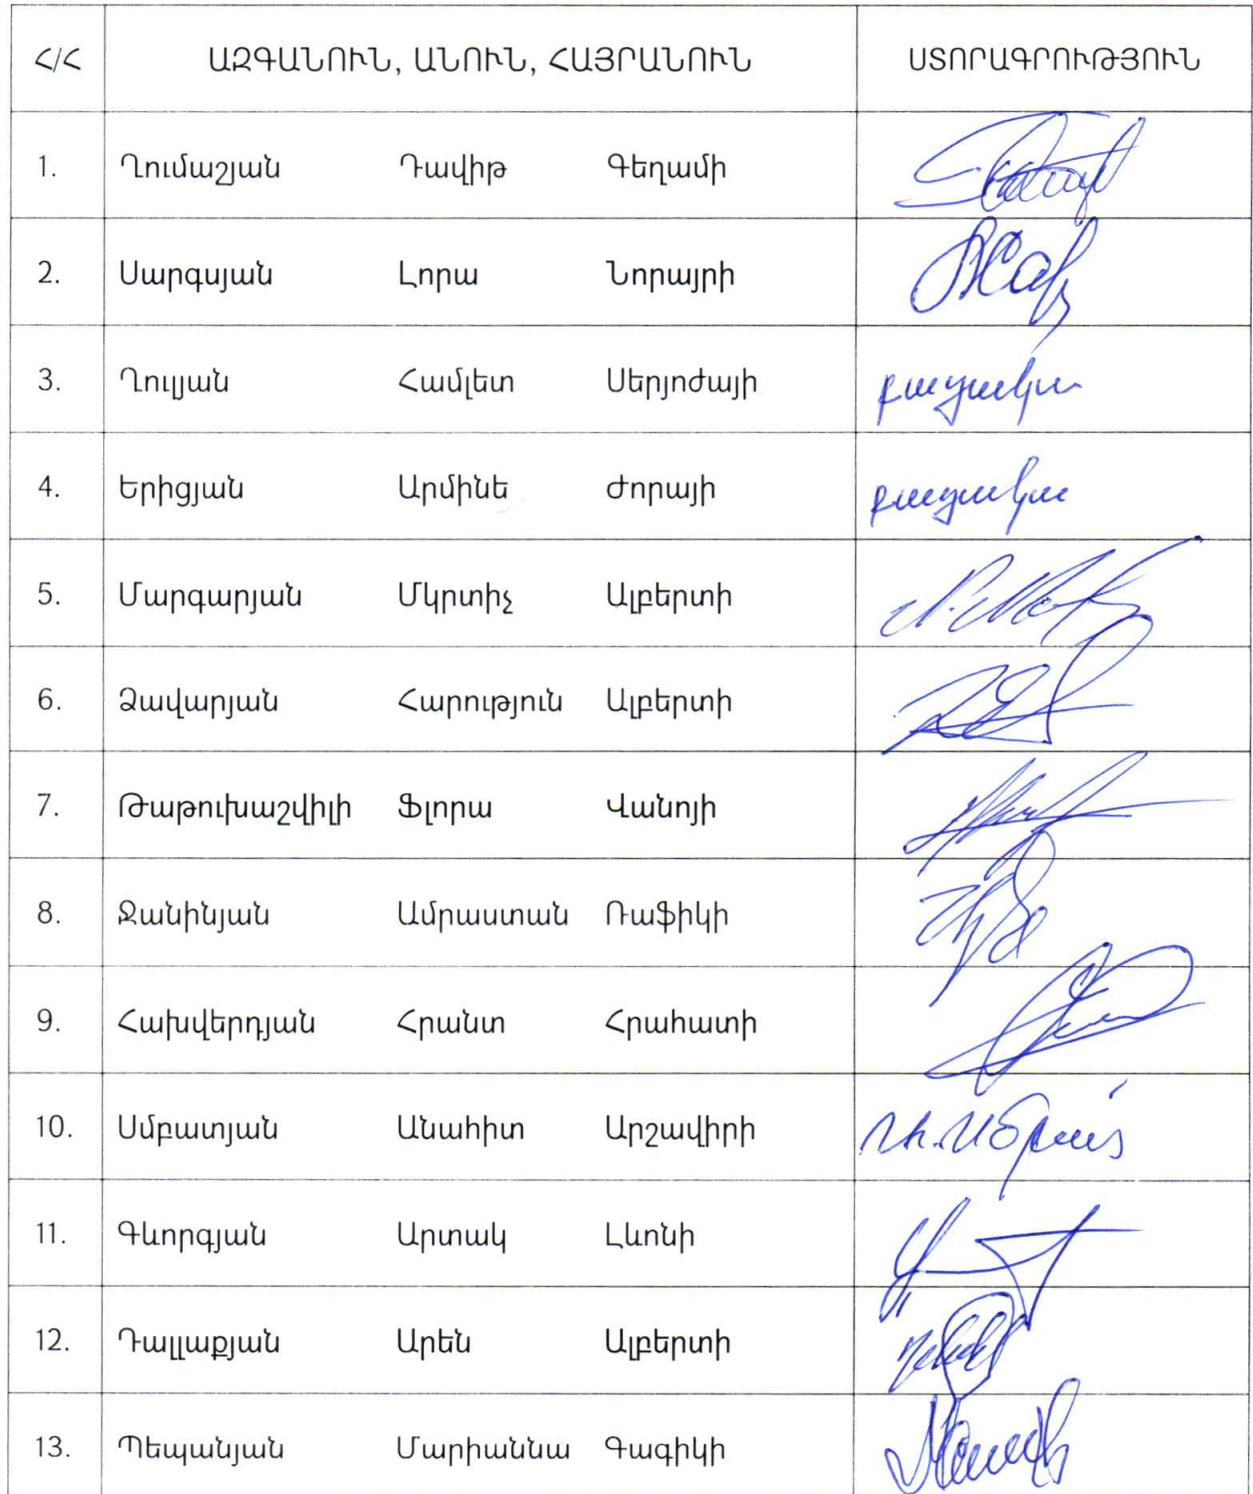 Հ/Հ ԱԶԳԱՆՈՒՆ, ԱՆՈՒՆ, ՀԱՅՐԱՆՈՒՆ ՍՏՈՐԱԳՐՈՒԹՅՈՒՆ
1. Ղումաշյան Դավիթ Գեղամի
2. Սարգսյան Լորա Նորայրի
3. Ղուլյան Համլետ Սերյոժայի բացակա
4. Երիցյան Արմինե Ժորայի բացակա
5. Մարգարյան Մկրտիչ Ալբերտի
6. Ձավարյան Հարություն Ալբերտի
7. Թաթուխաշվիլի Ֆլորա Վանոյի
8. Ջանինյան Ամրաստան Ռաֆիկի
9. Հախվերդյան Հրանտ Հրահատի
10. Սմբատյան Անահիտ Արշավիրի
11. Գևորգյան Արտակ Լևոնի
12. Դալլաքյան Արեն Ալբերտի
13. Պեպանյան Մարիաննա Գագիկի